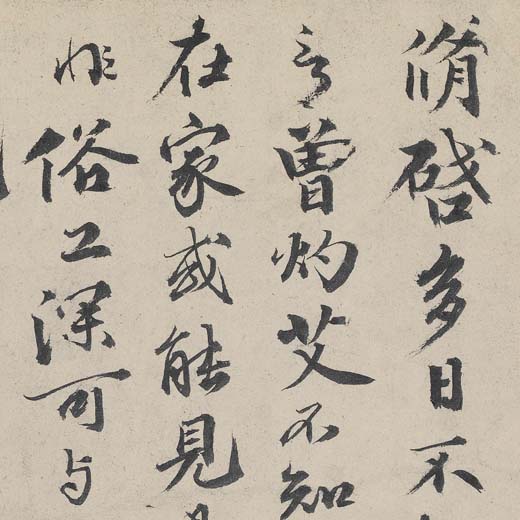 脩啓多日不
言曾灼艾不知
在家或能見
非俗工深可与